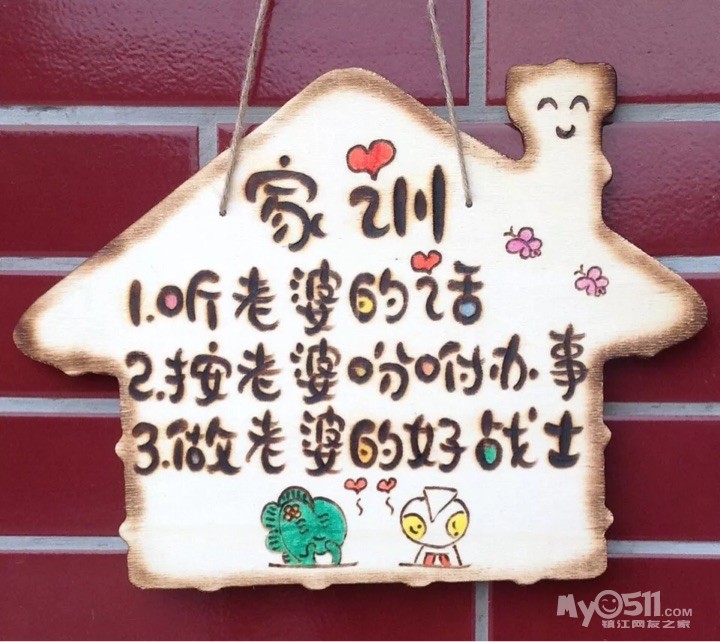 家训
1.听老婆的话
2.按老婆吩咐办事
3.做老婆的好战士
My0511.com
镇江网友之家